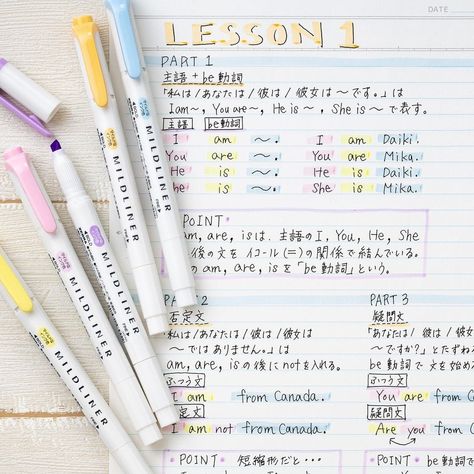 DATE
LESSON 1
PART 1
主語 + be動詞
「私は/あなたは/彼は/彼女は ～です。」は
I am～, You are～, He is～, She is～ で表す。
主語 be動詞
I am ～. I am Daiki.
You are ～. You are Mika.
He is ～. He is Daiki.
She is ～. She is Mika.
POINT
am, are, isは、主語の I, You, He, She
後の文を イコール(=)の関係で結んでいる。
am, are, isを「be動詞」という。
2
否定文
「私は/あなたは/彼は/彼女は
～ではありません。」は
am, are, isの後にnotを入れる。
ふつう文
I am from Canada.
定文
I am not from Canada.
POINT 短縮形だと…
PART 3
疑問文
「あなたは/彼は/彼女は
～ですか?」とたずね
be動詞で文を始め
ふつう文
You are from C
疑問文
Are you from C
POINT be動詞で
MILDLINER
MILDLINER
MILDLINER
MILDLINER
MILDLINER